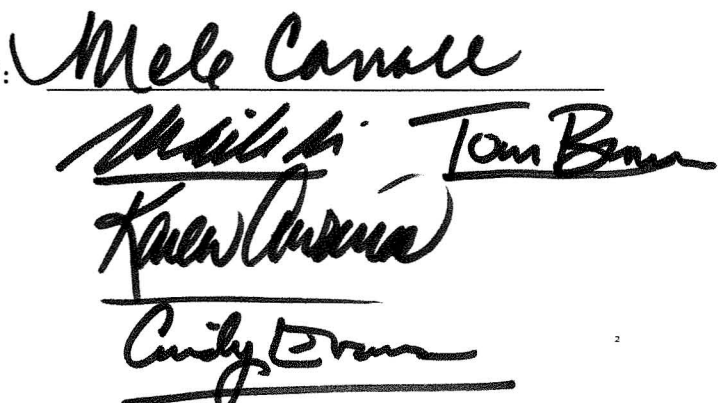 : Mele Carroll
Tom Brower
Karen Awana
Cindy Evans
2